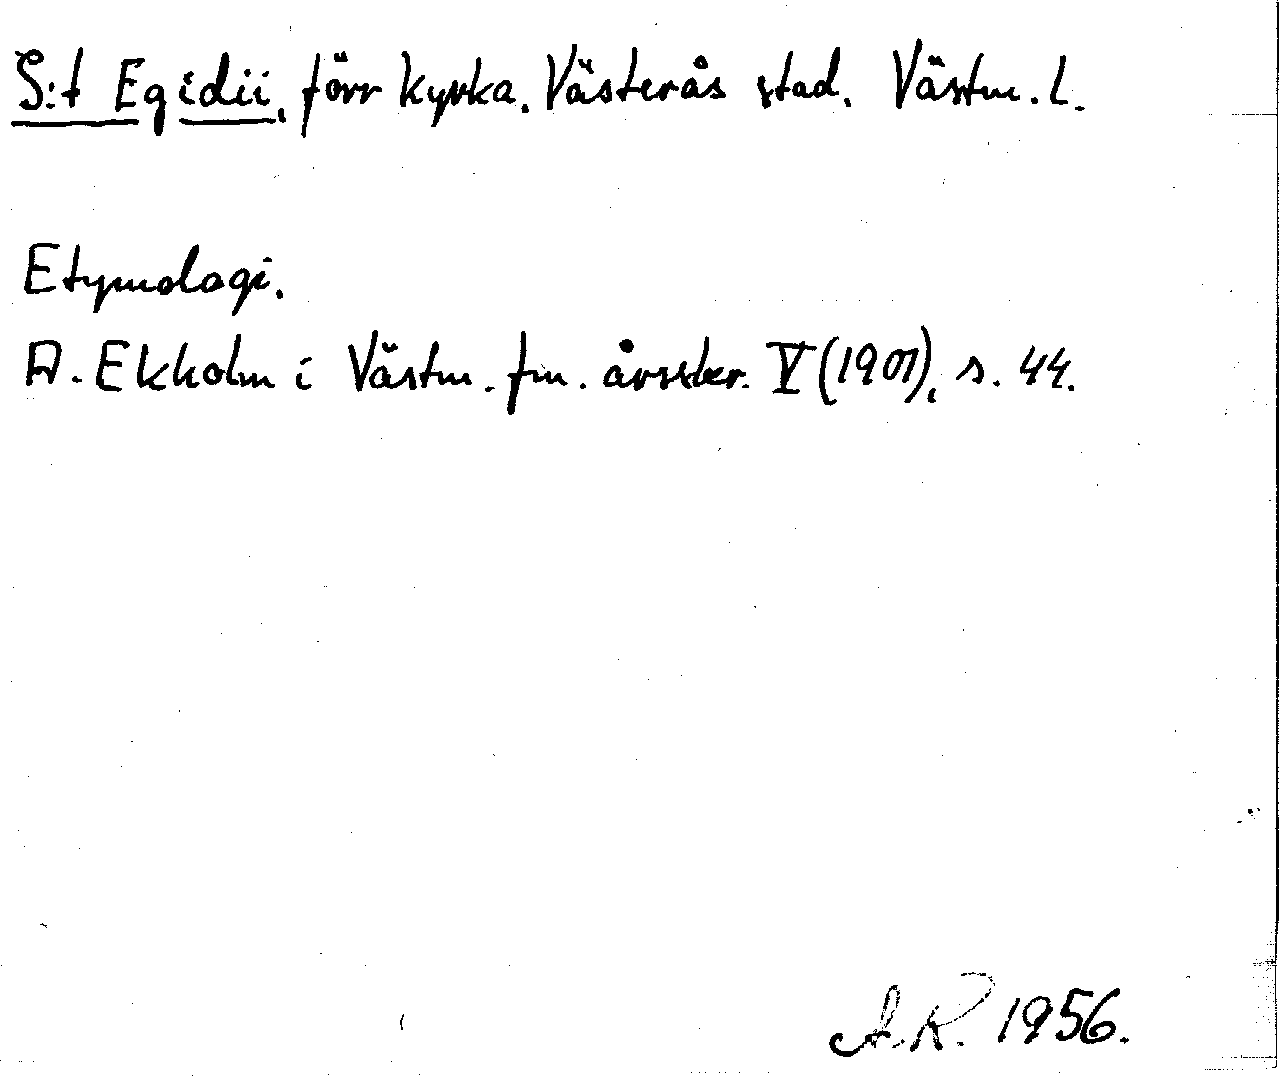 S:t Egidii, förr kyrka. Västerås stad. Västm. l.
Etymologi.
A. Ekholm i Västm. fm. årsskr. V (1907), s. 44.
A.R. 1956.